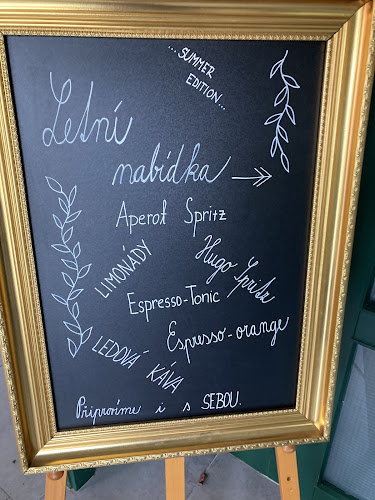 ...SUMMER
EDITION...
Letní
nabídka
Aperol Spritz
LIMONÁDY
Hugo Spritz
Espresso-Tonic
Espresso-orange
LEDOVÁ KÁVA
Připravíme i s SEBOU.